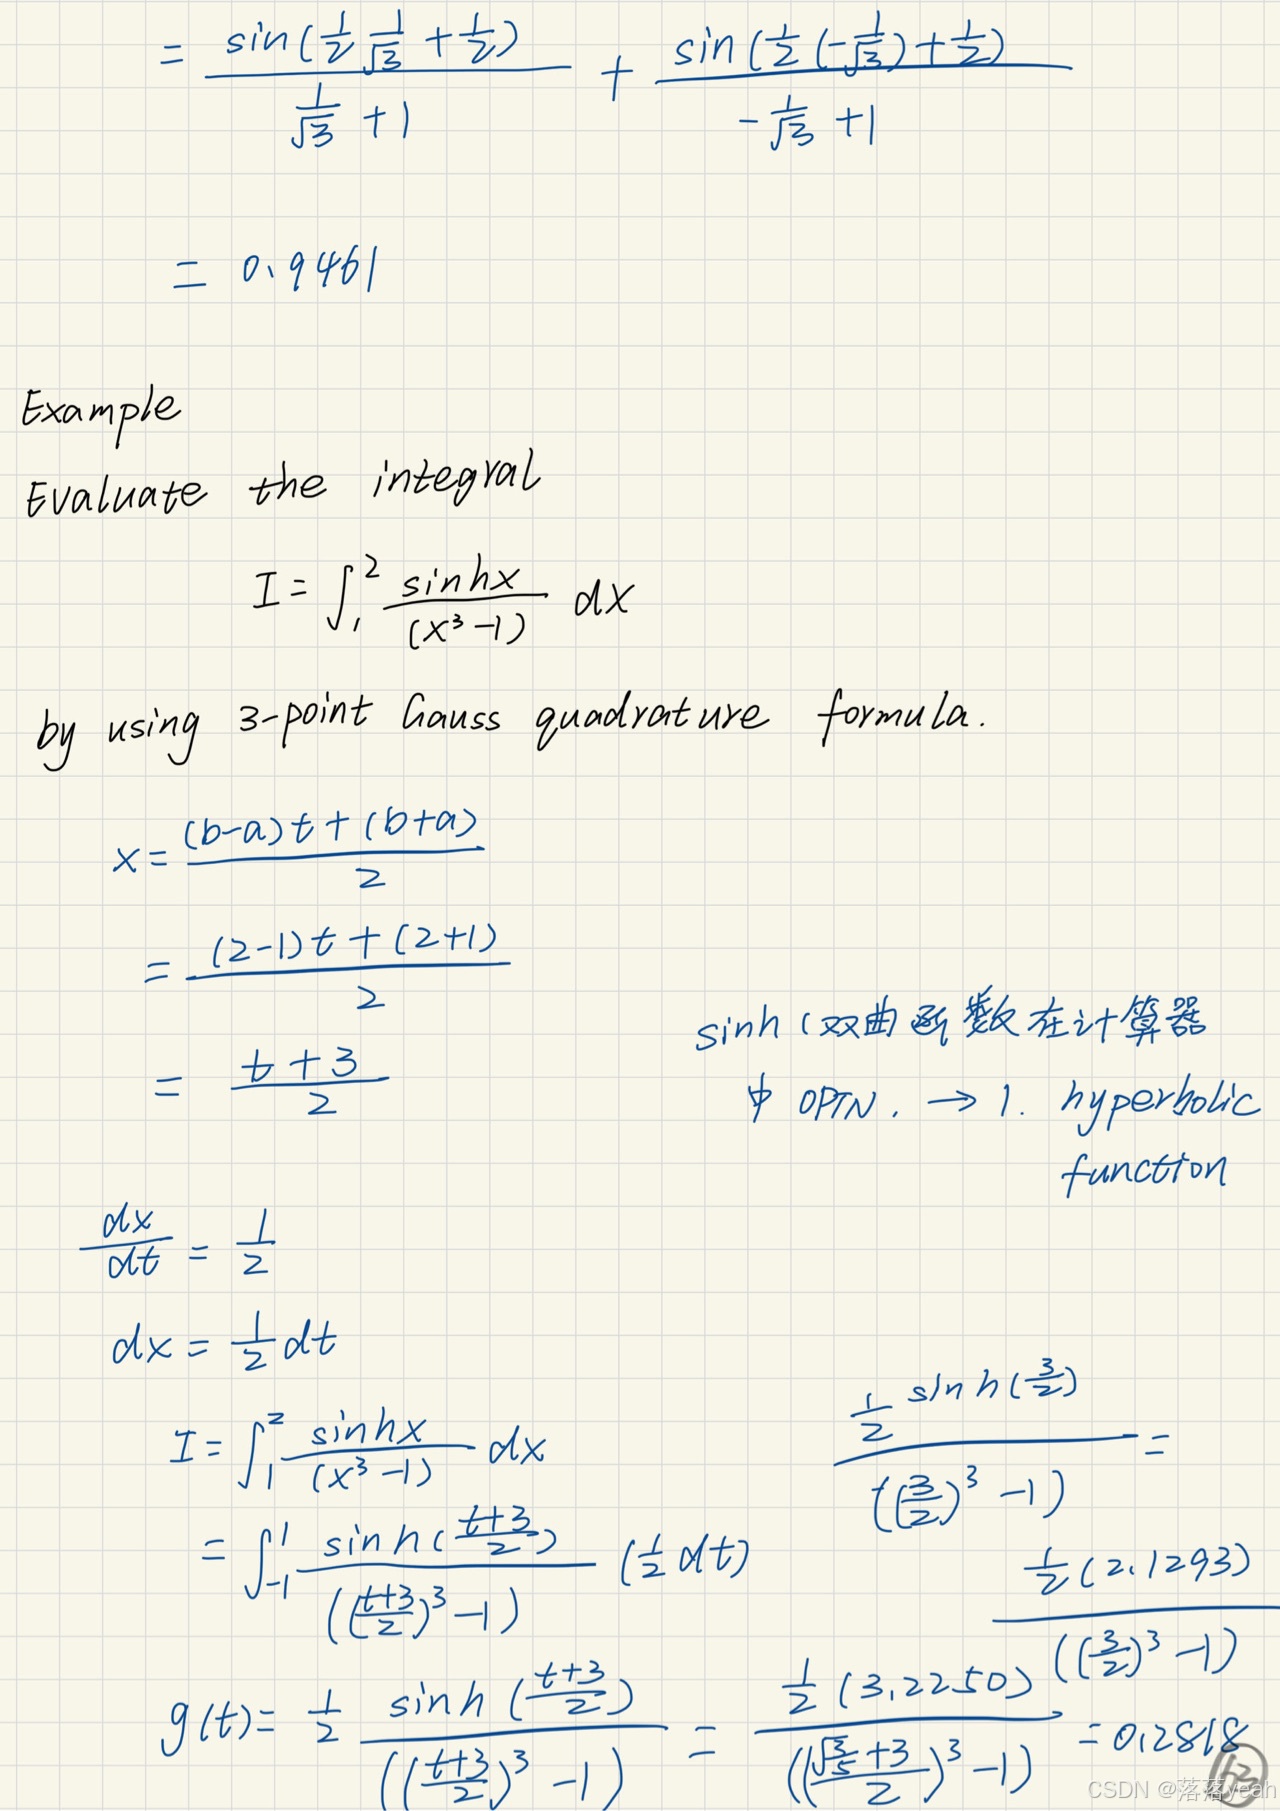 = sin(1/2 1/√3 + 1/2) / (1/√3 + 1) + sin(1/2 (-1/√3) + 1/2) / (-1/√3 + 1)
= 0.9461
Example
Evaluate the integral
I = ∫₁² sinhx / (x³ -1) dx
by using 3-point Gauss quadrature formula.
x = ((b-a)t + (b+a)) / 2
= ((2-1)t + (2+1)) / 2
= (t + 3) / 2
sinh (双曲函数在计算器
中 OPTN. → 1. hyperbolic
function
dx/dt = 1/2
dx = 1/2 dt
I = ∫₁² sinhx / (x³ -1) dx
= ∫₋₁¹ sinh((t+3)/2) / (((t+3)/2)³ -1) (1/2 dt)
1/2 sinh(3/2) / ((3/2)³ -1) =
1/2 (2.1293) / ((3/2)³ -1)
g(t) = 1/2 sinh((t+3)/2) / (((t+3)/2)³ -1) = 1/2 (3.2250) / (((√3/5 +3)/2)³ -1) = 0.2818
CSDN @落落yeah